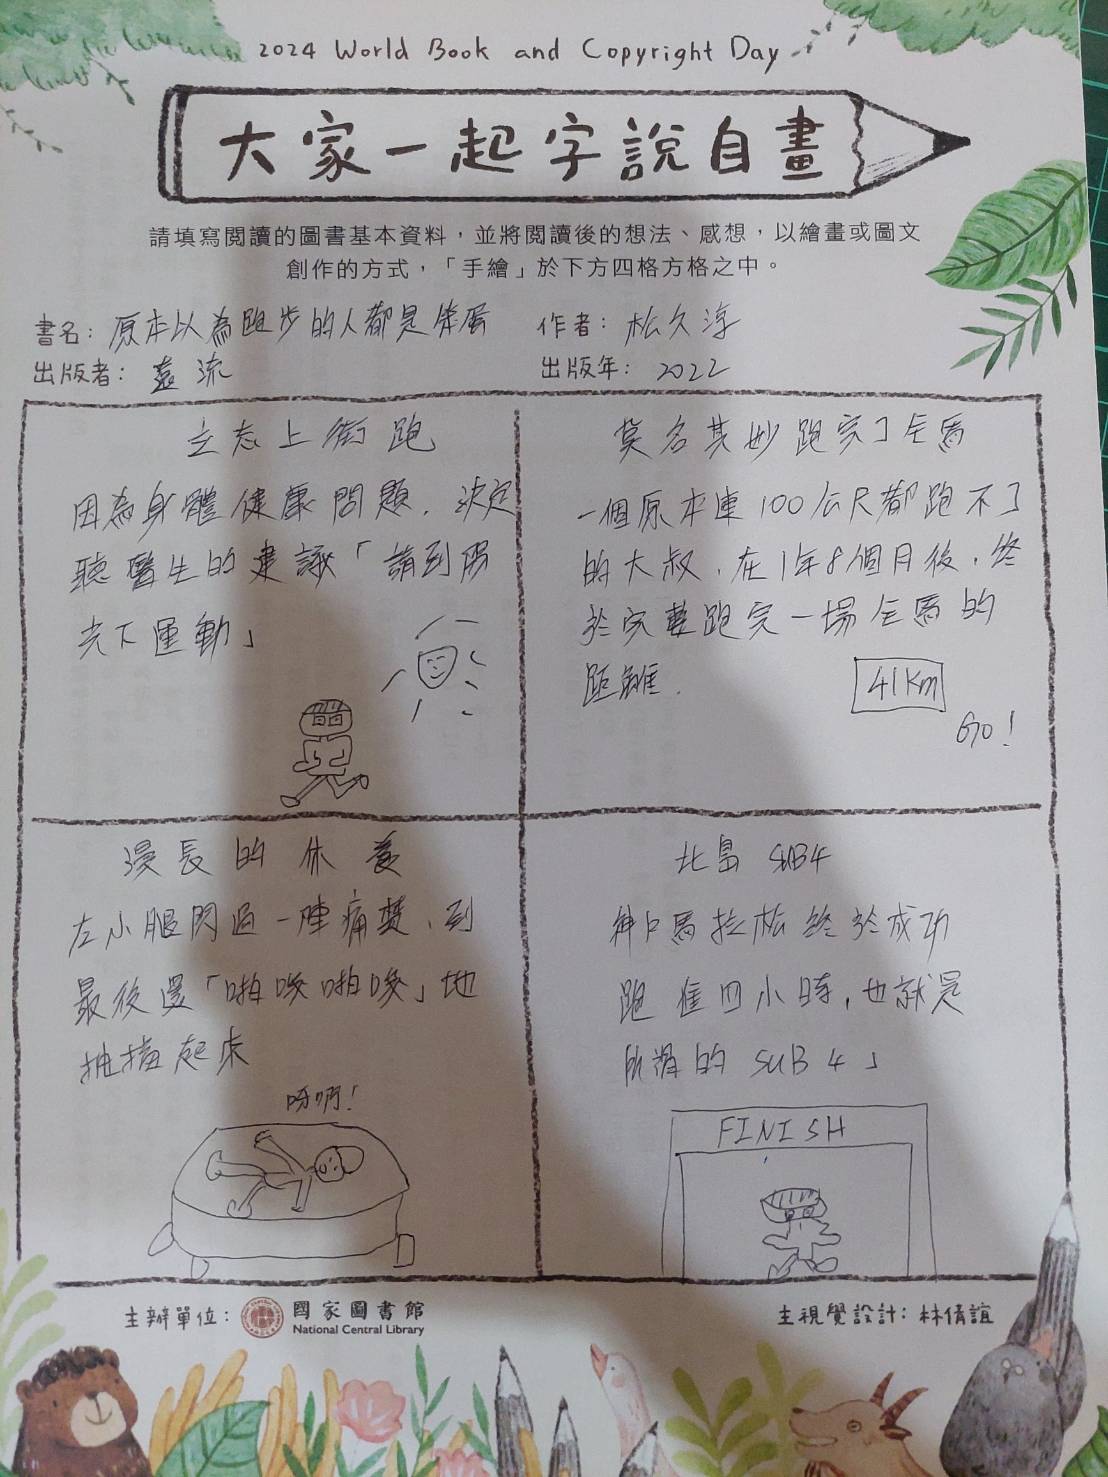 2024 World Book and Copyright Day
大家一起字說自畫
請填寫閱讀的圖書基本資料，並將閱讀後的想法、感想，以繪畫或圖文
創作的方式，「手繪」於下方四格方格之中。
書名：原本以為跑步的人都是笨蛋
作者：松久淳
出版者：遠流
出版年：2022
立志上街跑
因為身體健康問題，決定
聽醫生的建議「請到陽
光下運動」
莫名其妙跑完了全馬
一個原本連100公尺都跑不了
的大叔，在1年8個月後，終
於完整跑完一場全馬的
距離．
41km
GO！
漫長的休養
左小腿閃過一陣痛楚，到
最後還「啪唉啪唉」地
抽搐起來
呀啊！
北畠 SUB4
神戶馬拉松終於成功
跑進四小時，也就是
所謂的SUB 4」
FINISH
主辦單位：國家圖書館
National Central Library
主視覺設計：林倩誼